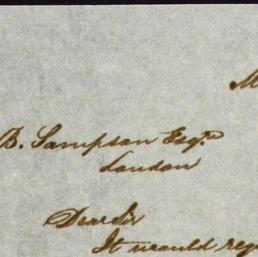 M
B. Sampson Esqre
London
Dear Sir
It would reg